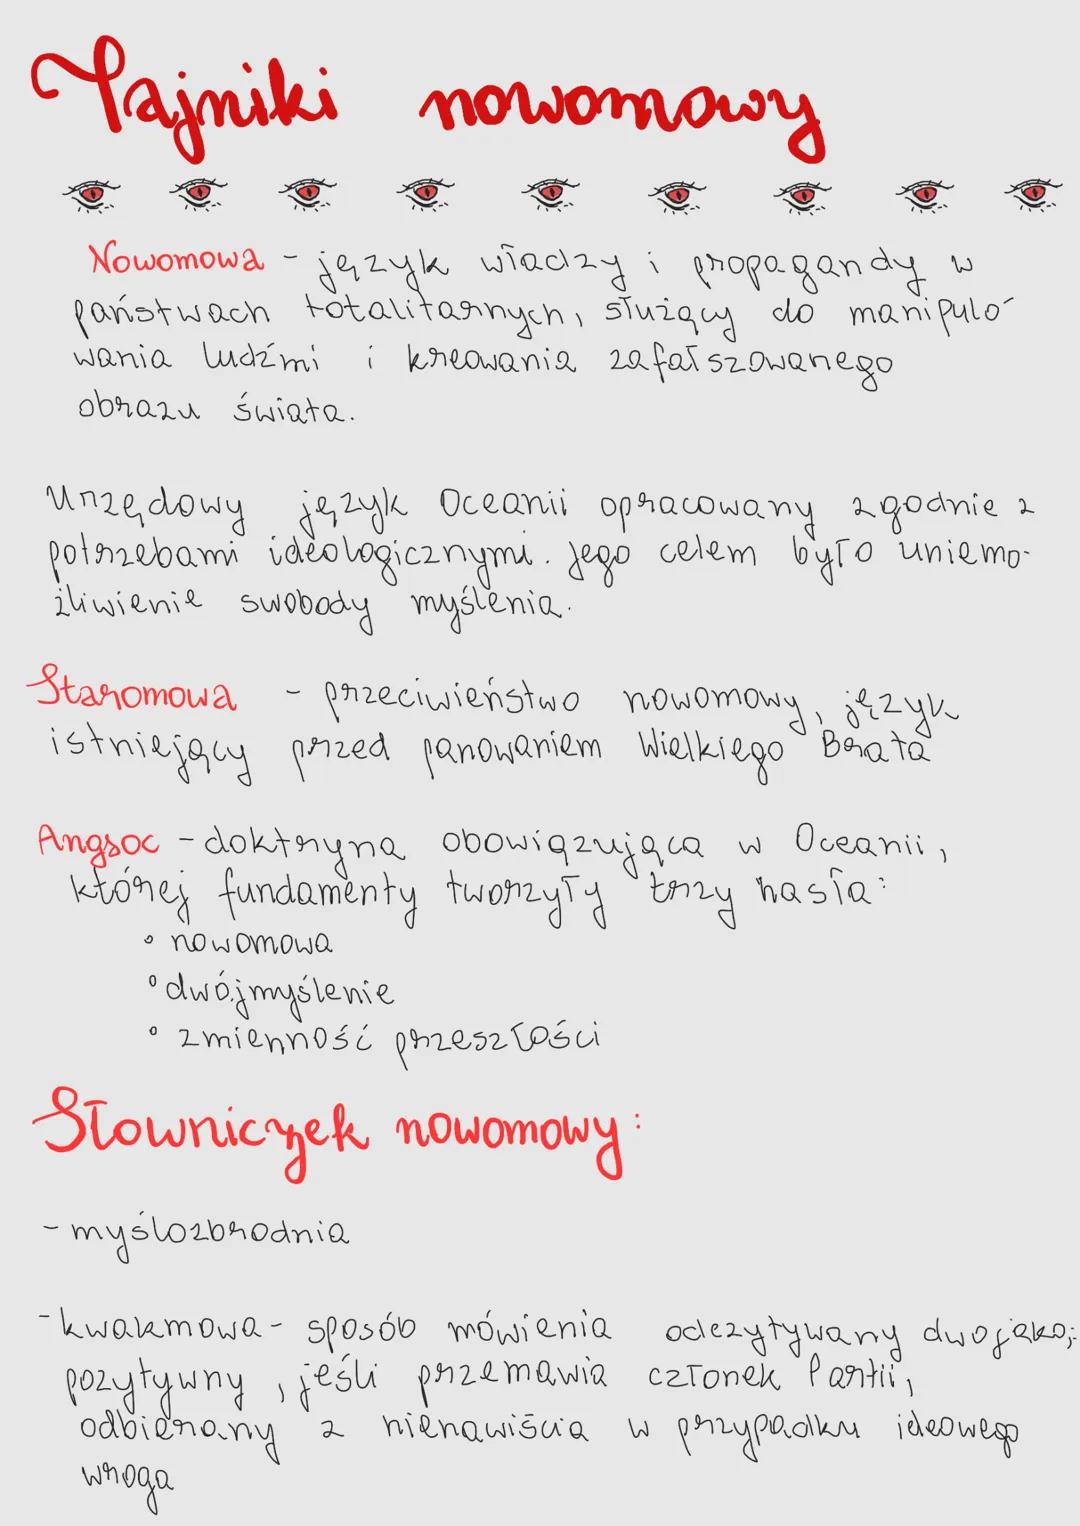 Tajniki nowomowy
Nowomowa - język władzy i propagandy w
państwach totalitarnych, służący do manipulo-
wania ludźmi i kreowania zafałszowanego
obrazu świata.
Urzędowy język Oceanii opracowany zgodnie z
potrzebami ideologicznymi. Jego celem było uniemo-
żliwienie swobody myślenia.
Staromowa - przeciwieństwo nowomowy, język
istniejący przed panowaniem Wielkiego Brata
Angsoc - doktryna obowiązująca w Oceanii,
której fundamenty tworzyły trzy hasła:
• nowomowa
• dwójmyślenie
• zmienność przeszłości
Słowniczek nowomowy:
- myślozbrodnia
- kwakmowa - sposób mówienia odczytywany dwojako;
pozytywny, jeśli przemawia członek Partii,
odbierany z nienawiścią w przypadku ideowego
wroga